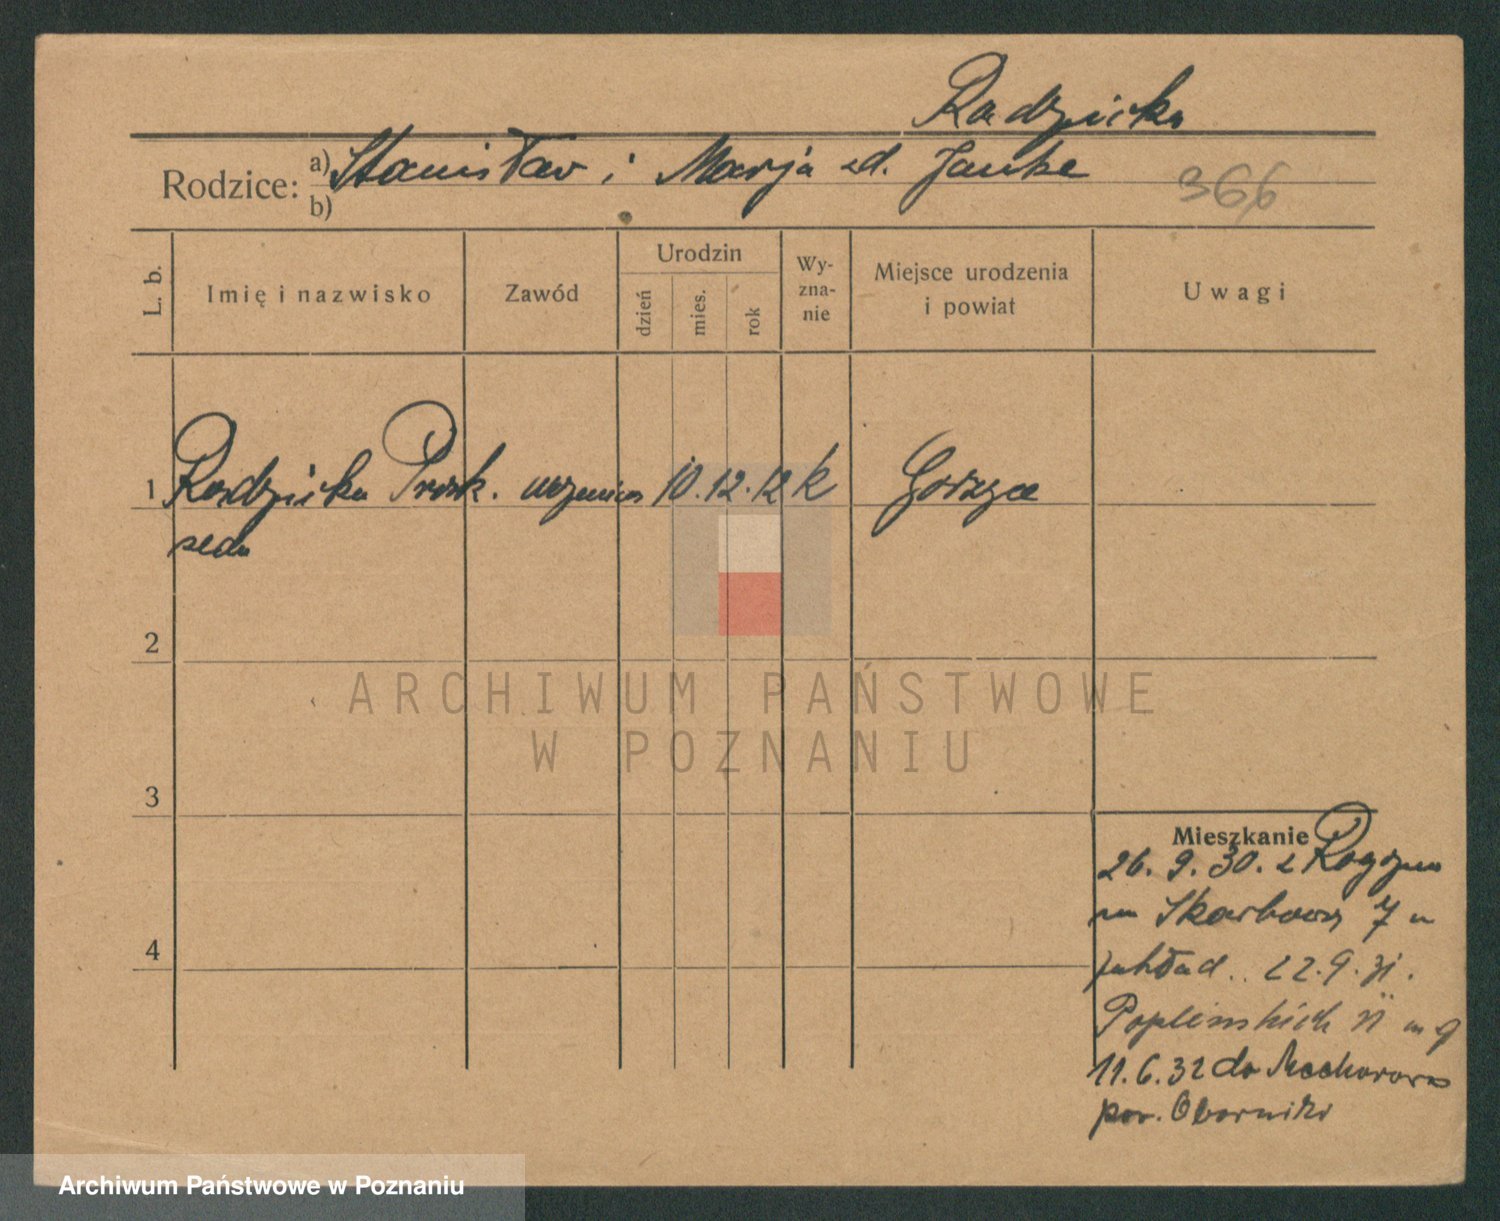 Radzicka
Rodzice: a) Stanisław i Marja zd. Janke
b)
366
L. b.
Imię i nazwisko
Zawód
Urodzin
dzień
mies.
rok
Wy-
zna-
nie
Miejsce urodzenia
i powiat
Uwagi
1 Radzicka Prask. uczenica 10.12.12 k Gorzyce
2
3
4
Mieszkanie
26. 9. 30. z Rogozna
na Skarbowa 7 u
zakład. 22.9.31.
Poplinskich 11 m 9
11.6.32 do
pow. Oborniki
ARCHIWUM PAŃSTWOWE
W POZNANIU
Archiwum Państwowe w Poznaniu